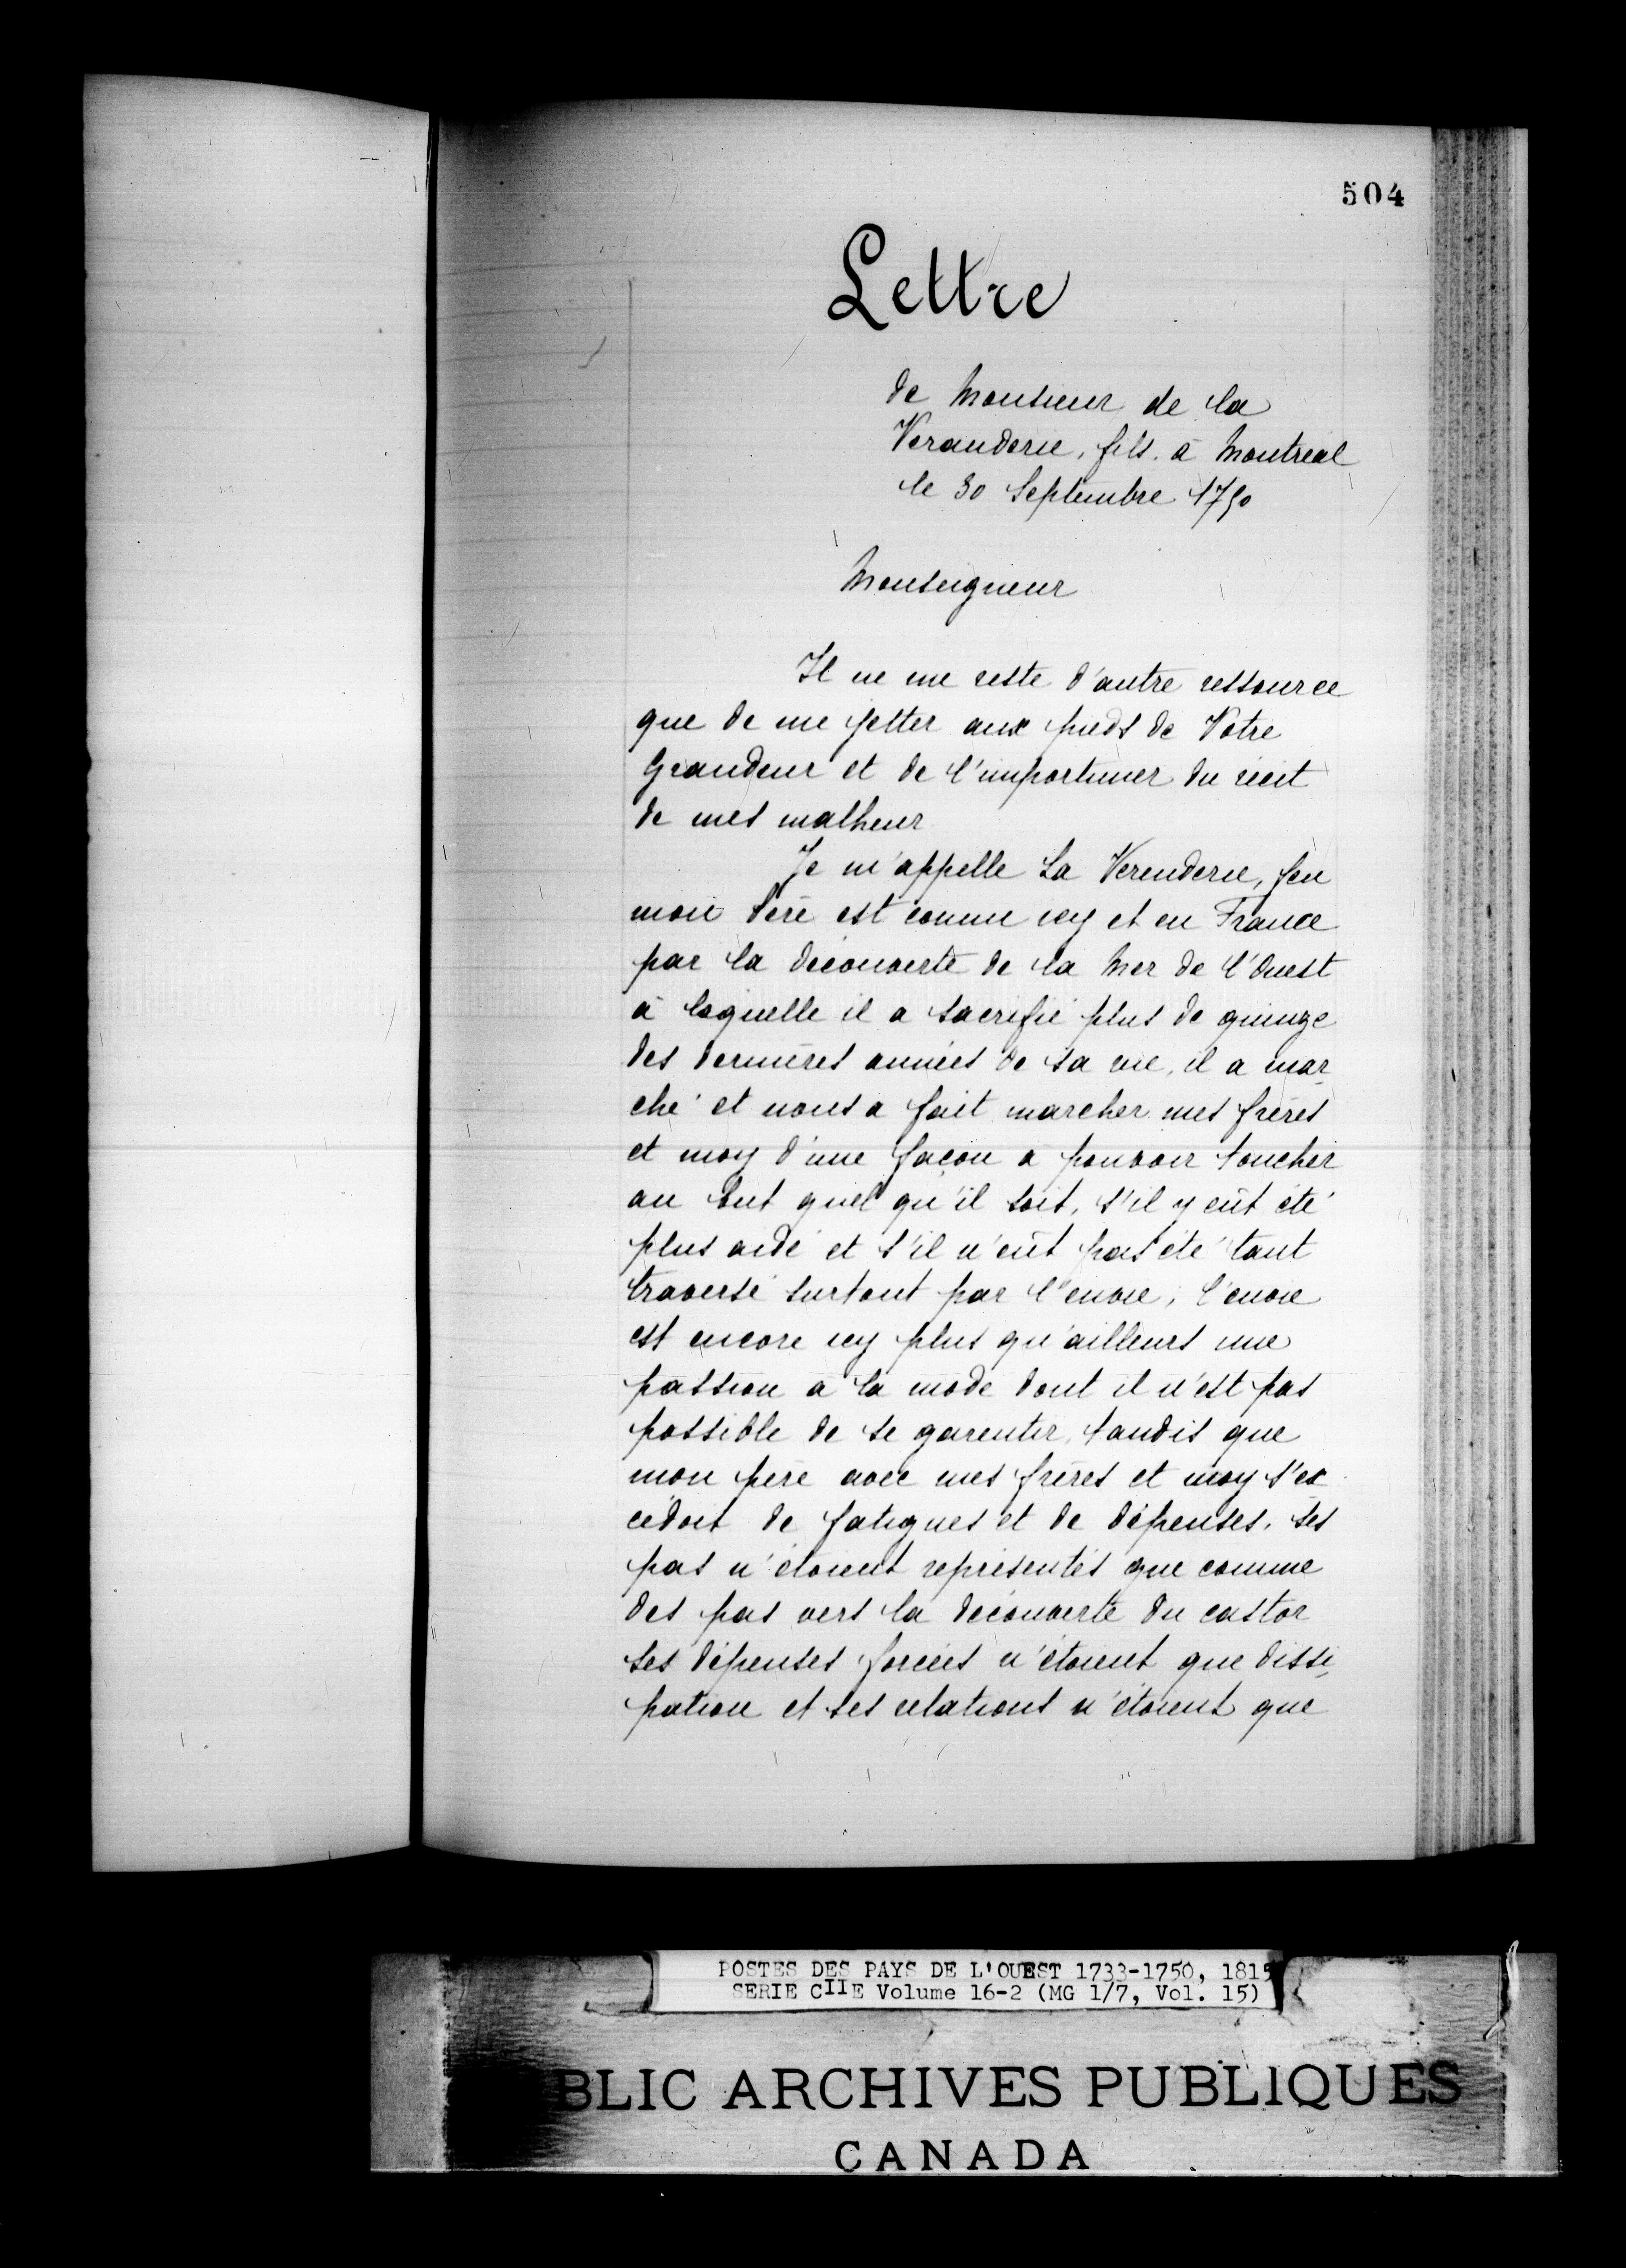 504
Lettre
de Monsieur de la
Veranderie, fils. à Montréal
le 30 Septembre 1750
Monseigneur
Il ne me reste d'autre ressource
que de me jetter aux pieds de Votre
Grandeur et de l'importuner du récit
de mes malheur
Je m'appelle La Verenderie, feu
mon Père est connu icy et en France
par la découverte de la Mer de l'Ouest
à laquelle il a sacrifié plus de quinze
des dernières années de sa vie, il a mar
ché et nous a fait marcher mes frères
et moy d'une façon a pouvoir toucher
au but quel qu'il soit, s'il y eût été
plus aidé et s'il n'eût pas été tant
traversé surtout par l'envie, l'envie
est encore icy plus qu'ailleurs une
passion à la mode dont il n'est pas
possible de se garentir, tandis que
mon père avec mes frères et moy s'ex
cédoit de fatigues et de dépenses, ses
pas n'étoient représentés que comme
des pas vers la découverte du castor
ses dépenses forcées n'étoient que dissi
pation et ses relations n'étoient que
POSTES DES PAYS DE L'OUEST 1733-1750, 1815
SERIE CIIE Volume 16-2 (MG 1/7, Vol. 15)
BLIC ARCHIVES PUBLIQUES
CANADA